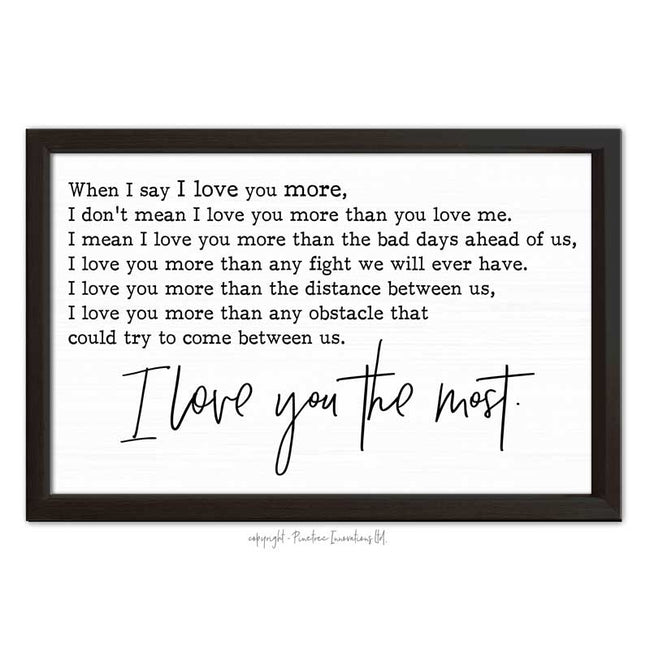 When I say I love you more,
I don't mean I love you more than you love me.
I mean I love you more than the bad days ahead of us,
I love you more than any fight we will ever have.
I love you more than the distance between us,
I love you more than any obstacle that
could try to come between us.
I love you the most.
copyright - Pinetree Innovations Ltd.